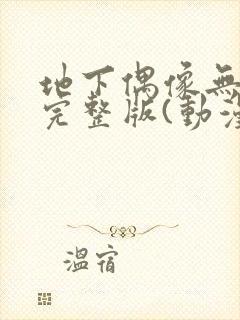 地下偶像無
完整版(動漫
溫宿